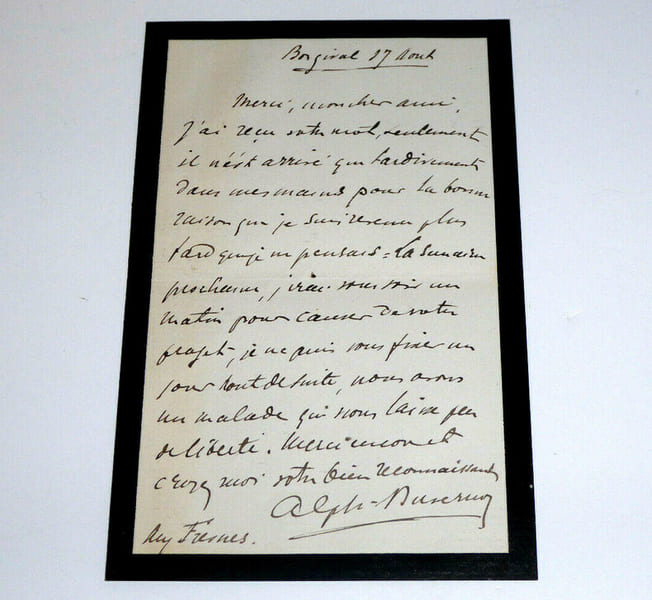 Bougival 17 Aout
Merci, mon cher ami,
j'ai reçu votre mot, seulement
il n'est arrivé que tardivement
dans mes mains pour la bonne
raison que je suis revenu plus
tard que je ne pensais = La semaine
prochaine, j'irai vous voir un
matin pour causer de votre
projet, je ne puis vous fixer un
jour tout de suite, nous avons
un malade qui nous laisse peu
de liberté. Merci encore et
croyez moi votre bien reconnaissant
Alph. Duvernoy
aux Frênes.